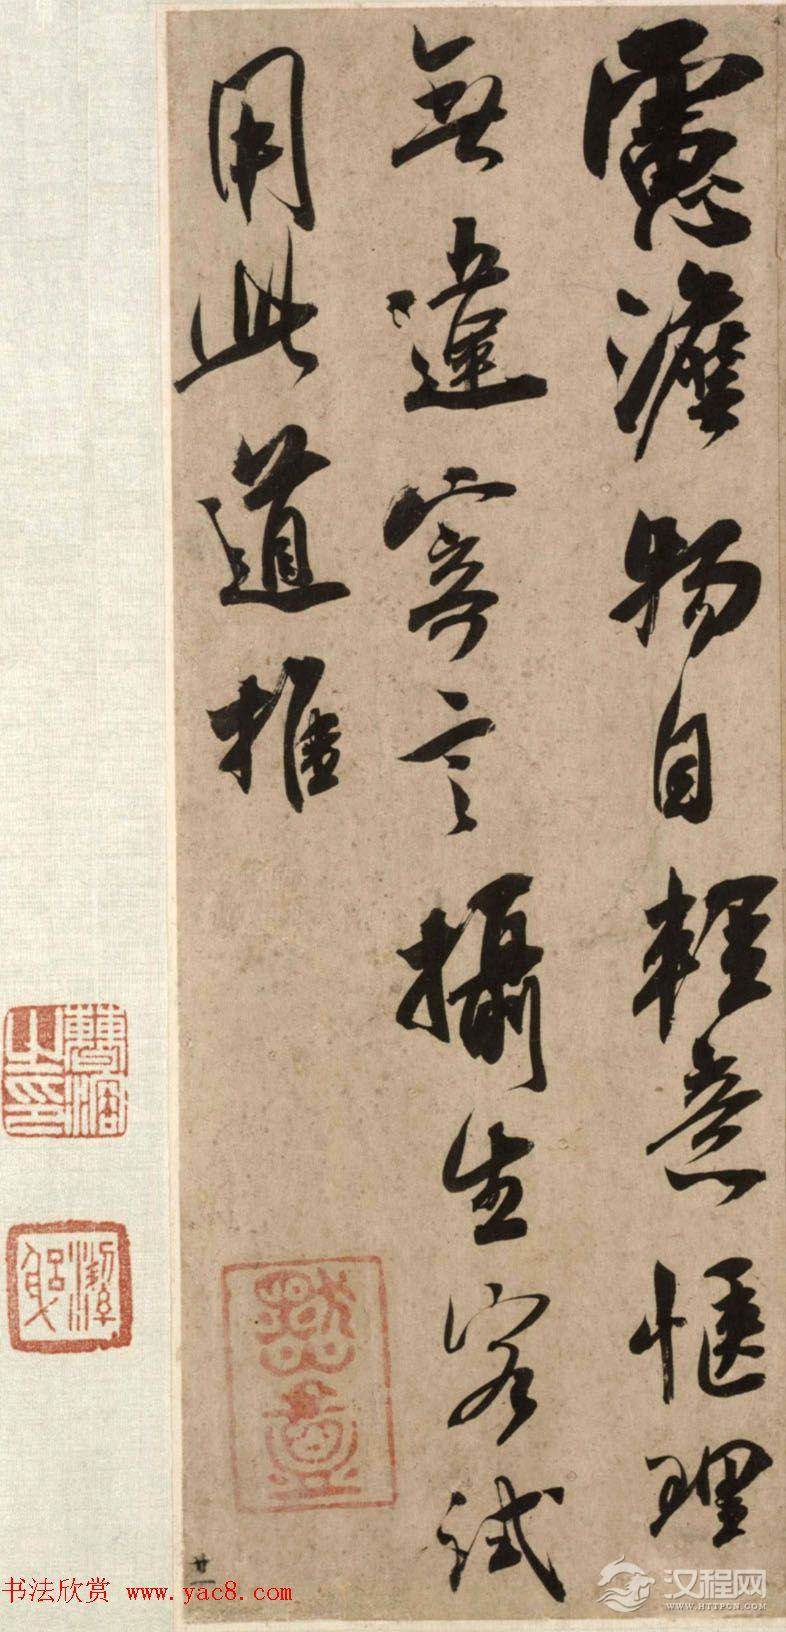 慮澹物自輕意愜理
無違寄言攝生客試
用此道推
书法欣赏 www.yac8.com
汉程网
WWW.HTTPCN.COM